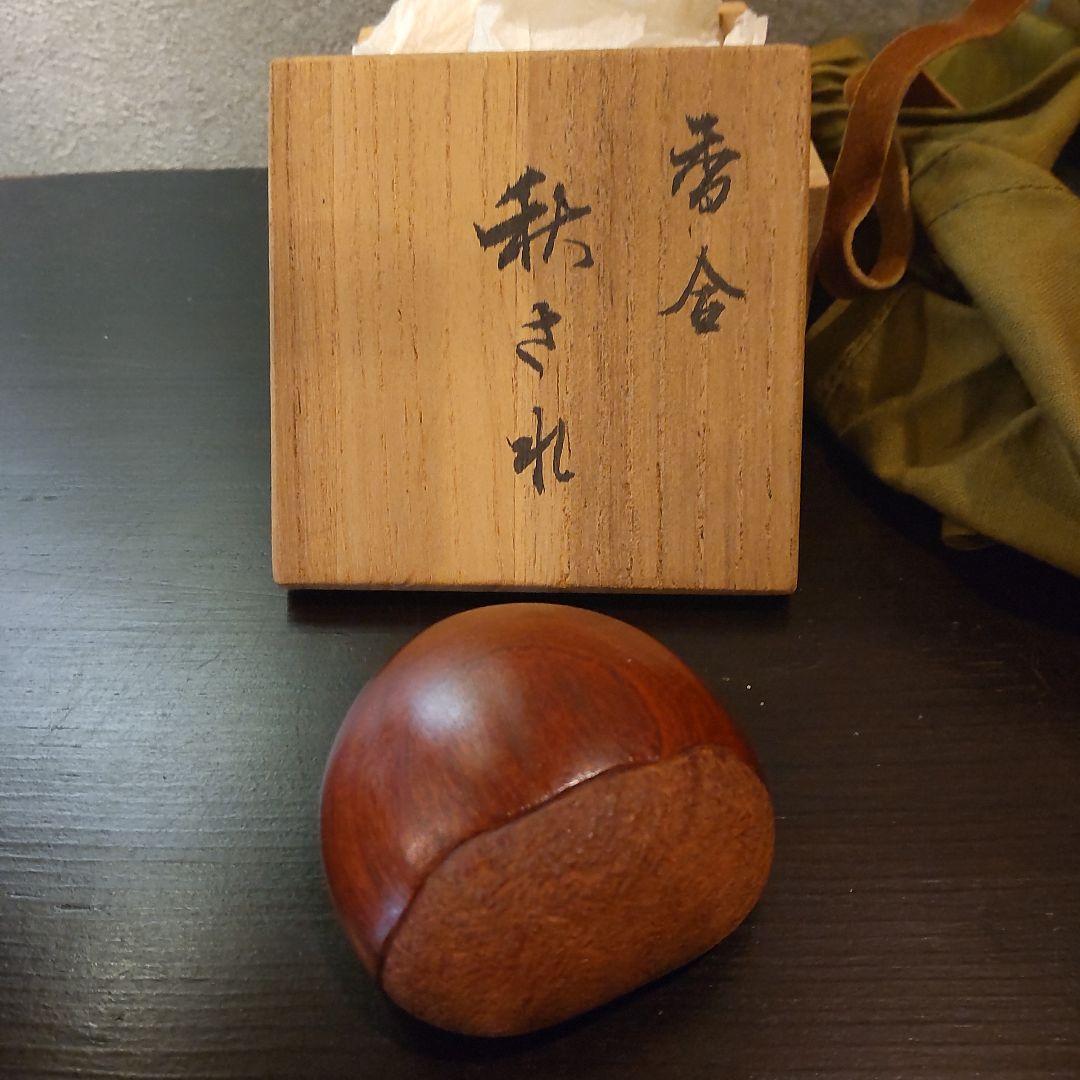 香合
秋きれ